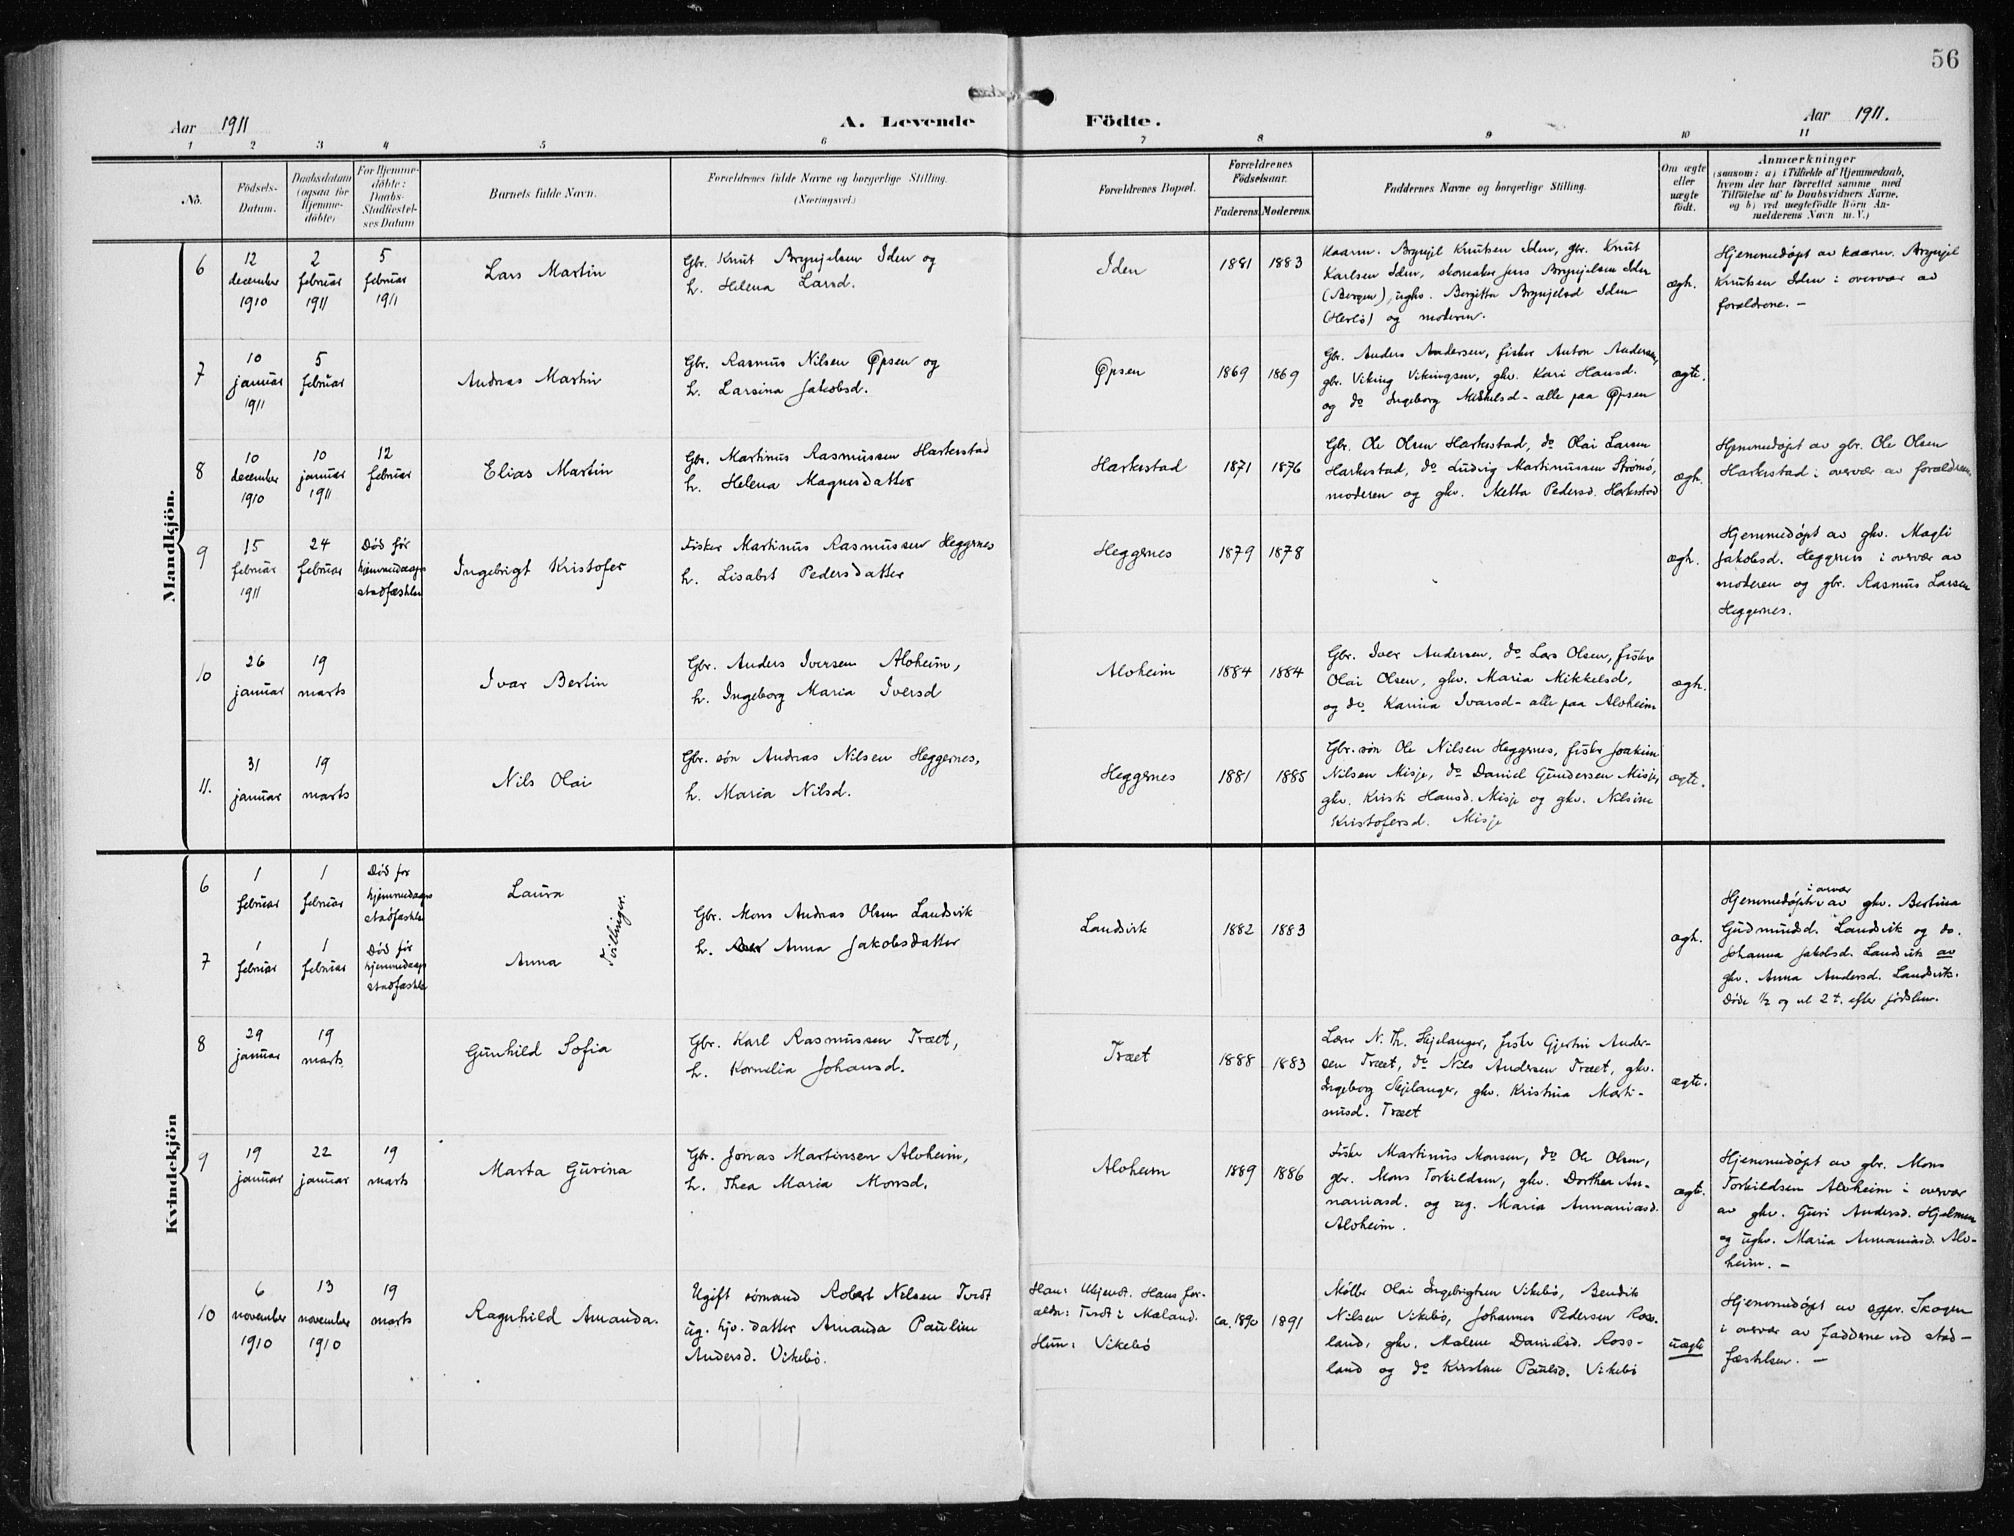 56
Aar 1911
A. Levende Födte.
Aar 1911.
1 2 3 4 5 6 7 8 9 10 11
No.
Födsels-
Datum.
Daabsdatum
(ogsaa for
Hjemme-
döbte)
For Hjemme-
döbte:
Daabs-
Stadfæstel-
ses Datum
Barnets fulde Navn.
Forældrenes fulde Navne og borgerlige Stilling.
(Næringsvei.)
Forældrenes Bopæl.
Forældrenes
Födselsaar.
Faderens. Moderens.
Faddernes Navne og borgerlige Stilling.
Om ægte
eller
uægte
födt.
Anmærkninger
(saasom: a) i Tilfælde af Hjemmedaab,
hvem der har forrettet samme, med
Tilföielse af to Daabsvidners Navne.
og b) ved uægtefödte Börn An-
melderens Navn m. V.)
Mandkjön.
6
12
december
1910
2
februar
1911
5
februar
1911
Lars Martin
Gbr. Knut Brynjelsen Iden og
h. Helena Larsd.
Iden
1881 1883
Kaarm. Brynjel Knutsen Iden, gbr. Knut
Karlsen Iden, skomaker Jens Brynjelsen Iden
(Bergen), ugkv. Bergitta Brynjelsd Iden
(Herlö) og moderen.
ægt.
Hjemmedøpt av kaarm. Brynjel
Knutsen Iden i overvær av
forældrene. –
7
10
januar
1911
5
februar
Andreas Martin
Gbr. Rasmus Nilsen Øpsen og
h. Larsina Jakobsd.
Øpsen
1869 1869
Gbr. Anders Andersen, fisker Anton Andersen,
gbr. Viking Vikingsen, gkv. Kari Hansd.
og do Ingeborg Mikkelsd – alle paa Øpsen
ægte.
8
10
december
1910
10
januar
1911
12
februar
Elias Martin
Gbr. Martinus Rasmussen Harkestad
h. Helena Magnesdatter
Harkestad
1871 1876
Gbr. Ole Olsen Harkestad, do Olai Larsen
Harkestad, do Ludvig Martinussen Strømø,
moderen og gkv. Metta Pedersd. Harkestad
ægt.
Hjemmedøpt av gbr. Ole Olsen
Harkestad i overvær av forældrene
9
15
februar
1911
24
februar
Død før
hjemmedaaps
stadfæstelse
Ingebrigt Kristofer
Fisker Martinus Rasmussen Heggernes
h. Lisabet Pedersdatter
Heggernes
1879 1878
ægt.
Hjemmedøpt av gkv. Magli
Jakobsd. Heggernes i overvær av
moderen og gbr. Rasmus Larsen
Heggernes.
10
26
januar
19
marts
Ivar Bertin
Gbr. Anders Iversen Alvheim,
h. Ingeborg Maria Iversd
Alvheim
1884 1884
Gbr. Iver Andersen, do Lars Olsen, fisker
Olai Olsen, gkv. Maria Mikkelsd,
og do Karina Ivarsd – alle paa Alvheim
ægt.
11.
31
januar
19
marts
Nils Olai
Gbr. søn Andreas Nilsen Heggernes,
h. Maria Nilsd.
Heggernes
1881 1885
Gbr. søn Ole Nilsen Heggernes, fisker Joakim
Nilsen Misje, do Daniel Gundersen Misje,
gkv. Kristi Hansd. Misje og gkv. Nilsine
Kristofersd. Misje
ægte.
Kvindekjön
6
1
februar
1
februar
Død før
hjemmedaaps
stadfæstelse
Laura
Tvillinger.
7
1
februar
1
februar
Død før
hjemmedaaps
stadfæstelse
Anna
Gbr. Mons Andreas Olsen Landsvik
h. Anna Jakobsdatter
Landsvik
1882 1883
ægt.
i overvær
Hjemmedøpt av gkv. Bertina
Gudmundsd. Landsvik og do.
Johanna Jakobsd. Landsvik av
gkv. Anna Andersd. Landsvik.
Døde ½ og vel 2 t. efter fødslen.
8
29
januar
19
marts
Gunhild Sofia
Gbr. Karl Rasmussen Træet,
h. Kornelia Johansd.
Træet
1888 1883
Lærer N. Th. Skjelanger, fisker Gjertin Ander-
sen Træet, do Nils Andersen Træet, gkv.
Ingeborg Skjelanger, gkv. Kristina Marti-
nusd. Træet
ægte.
9
19
januar
22
januar
19
marts
Marta Gurina
Gbr. Jonas Martinsen Alvheim,
h. Thea Maria Monsd.
Alvheim
1889 1886
Fisker Martinus Monsen, do Ole Olsen,
gbr. Mons Torkildsen, gkv. Dorthea An-
naniasd. og ug. Maria Annaniasd.
Alvheim.
ægte.
Hjemmedøpt av gbr. Mons
Torkildsen Alvheim i overvær
av gkv. Guri Andersd. Hjelmen
og ugkv. Maria Annaniasd. Alv-
heim. –
10
6
november
1910
13
november
1910
19
marts
Ragnhild Amanda.
Ugift sömand Robert Nilsen Tvedt
ug. hjv. datter Amanda Pauline
Andersd. Vikebø.
Han: Ukjendt. Hans for-
ældre: Tvedt i Maland.
Hun: Vikebø
ca. 1890 1891
Møller Olai Ingebrigtsen Vikebø, Bendik
Nilsen Vikebø, Johannes Pedersen Ross-
land, gkv. Malene Danielsd. Ross-
land og do Kirstine Paulsd. Vikebø
uægte
Hjemmedøpt av sgpr. Skogen
i overvær av fadderne ved stad-
fæstelsen. –